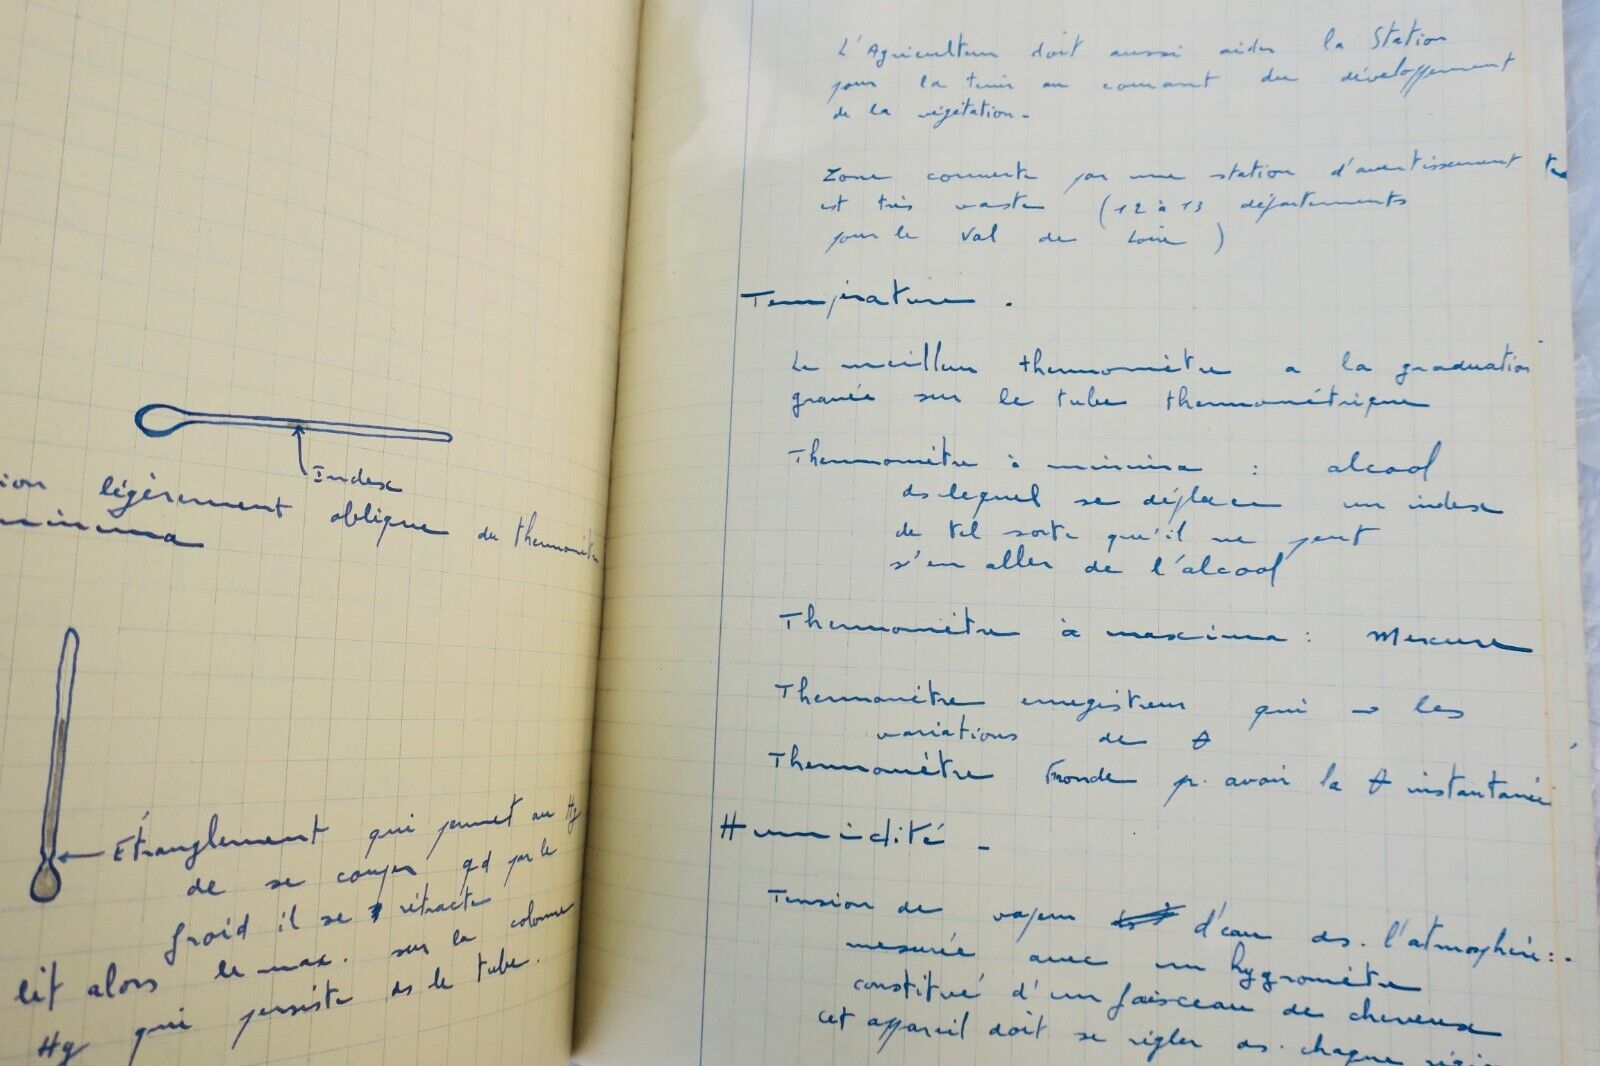 Index
ion légèrement oblique du thermomètre
minima
Étranglement qui permet au Hg
de se couper qd par le
froid il se rétracte
lit alors le max. sur la colonne
Hg qui persiste ds le tube.
L'Agriculteur doit aussi aider la Station
pour la tenir au courant du développement
de la végétation.
Zone couverte par une station d'avertissement
est très vaste (12 à 13 départements
pour le Val de Loire)
Température.
Le meilleur thermomètre a la graduation
gravée sur le tube thermométrique
Thermomètre à minima : alcool
ds lequel se déplace un index
de tel sorte qu'il ne peut
s'en aller de l'alcool
Thermomètre à maxima : Mercure
Thermomètre enregistreur qui → les
variations de θ
Thermomètre Fronde p. avoir la θ instantanée
Humidité -
Tension de vapeur d'eau ds. l'atmosphère :
mesurée avec un hygromètre
constitué d'un faisceau de cheveux
cet appareil doit se régler ds. chaque